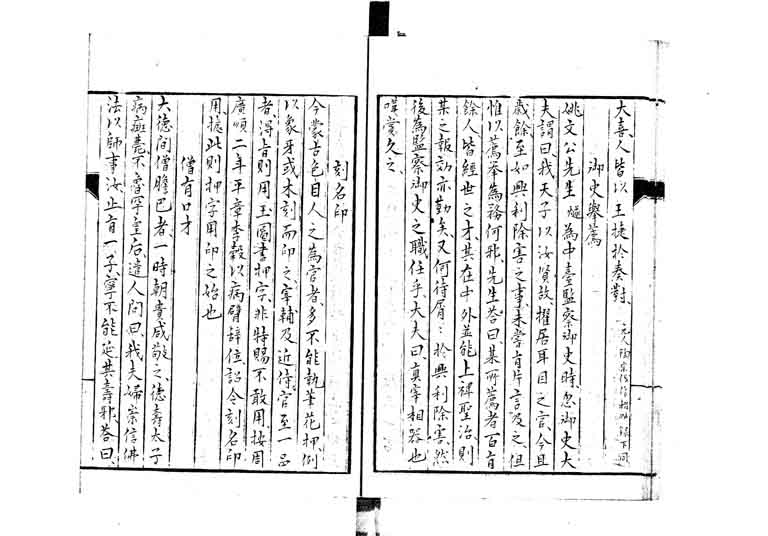 大喜人皆以王捷於奏對
御史舉薦
姚文公先生燧為中臺監察御史時忽御史大
夫謂曰我天子以汝賢故擢居耳目之官今且
歲餘至如興利除害之事未嘗有片言及之但
惟以薦舉為務何邪先生荅曰某所薦者百有
餘人皆經世之才其在中外並能上裨聖治則
某之報効亦勤矣又何待屑〻於興利除害然
後為監察御史之職任乎大夫曰真宰相器也
嘆賞久之
刻名印
今蒙古色目人之為官者多不能執筆花押例
以象牙或木刻而印之宰輔及近侍官至一品
者得旨則用玉圖書押字非特賜不敢用按周
廣順二年平章李穀以病臂辭位詔令刻名印
用據此則押字用印之始也
僧有口才
大德間僧膽巴者一時朝貴咸敬之德壽太子
病癍薨不魯罕皇后遣人問曰我夫婦崇信佛
法以師事汝止有一子寧不能延其壽邪荅曰